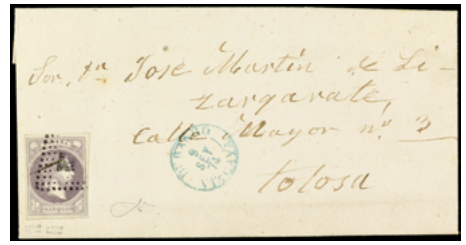 Sor. Dn Jose Martin de Li-
zargarate,
Calle Mayor nº 3
Tolosa